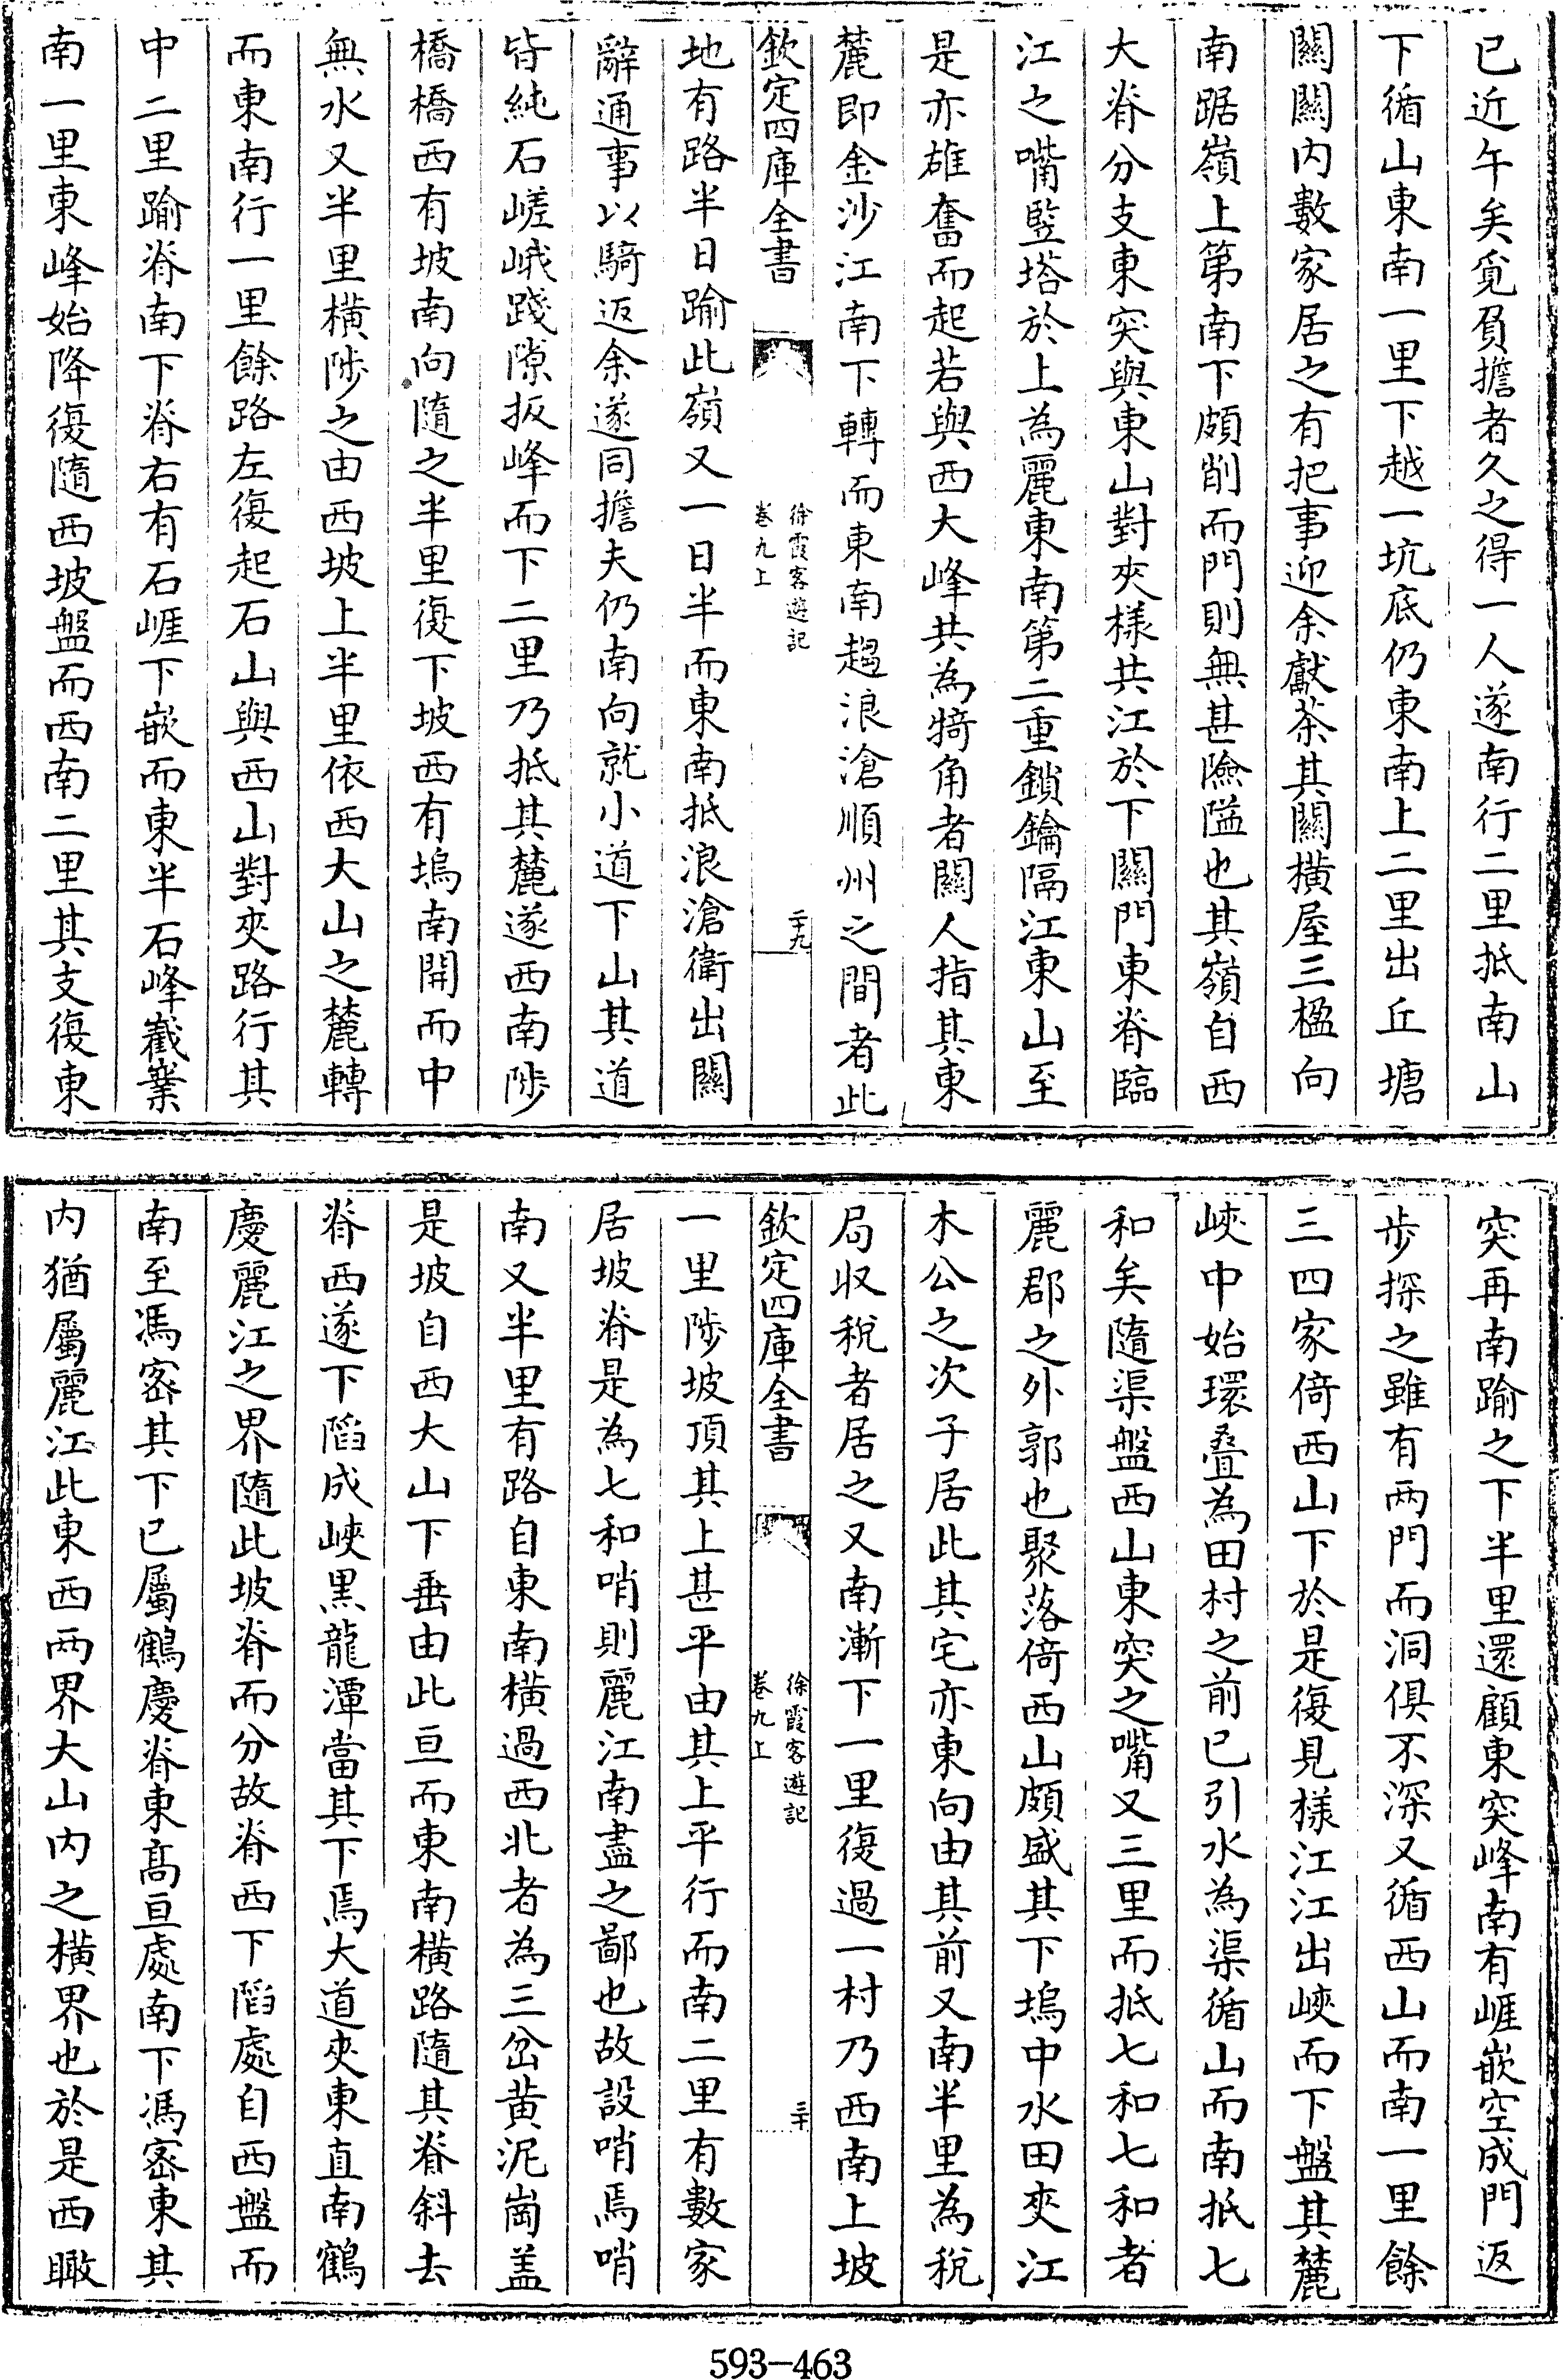 已近午矣覓負擔者久之得一人遂南行二里抵南山
下循山東南一里下越一坑底仍東南上二里出丘塘
關關内數家居之有把事迎余獻茶其關横屋三楹向
南踞嶺上第南下頗削而門則無甚險隘也其嶺自西
大脊分支東突與東山對夾樣共江於下關門東脊臨
江之嘴竪塔於上為麗東南第二重鎖鑰隔江東山至
是亦雄奮而起若與西大峰共為犄角者關人指其東
麓即金沙江南下轉而東南趨浪滄順州之間者此
欽定四庫全書
徐霞客遊記
卷九上
二十九
地有路半日踰此嶺又一日半而東南抵浪滄衛出關
辭通事以騎返余遂同擔夫仍南向就小道下山其道
皆純石嵯峨踐隙扳峰而下二里乃抵其麓遂西南陟
橋橋西有坡南向隨之半里復下坡西有塢南開而中
無水又半里横陟之由西坡上半里依西大山之麓轉
而東南行一里餘路左復起石山與西山對夾路行其
中二里踰脊南下脊右有石崕下嵌而東半石峰巀嶪
南一里東峰始降復隨西坡盤而西南二里其支復東
突再南踰之下半里還顧東突峰南有崕嵌空成門返
步探之雖有两門而洞俱不深又循西山而南一里餘
三四家倚西山下於是復見樣江江出峽而下盤其麓
峽中始環疊為田村之前已引水為渠循山而南抵七
和矣隨渠盤西山東突之嘴又三里而抵七和七和者
麗郡之外郭也聚落倚西山頗盛其下塢中水田夾江
木公之次子居此其宅亦東向由其前又南半里為稅
局収稅者居之又南漸下一里復過一村乃西南上坡
欽定四庫全書
徐霞客遊記
卷九上
三十
一里陟坡頂其上甚平由其上平行而南二里有數家
居坡脊是為七和哨則麗江南盡之鄙也故設哨焉哨
南又半里有路自東南横過西北者為三岔黄泥崗盖
是坡自西大山下垂由此亘而東南横路隨其脊斜去
脊西遂下䧟成峽黑龍潭當其下焉大道夾東直南鶴
慶麗江之界隨此坡脊而分故脊西下䧟處自西盤而
南至馮宻其下已屬鶴慶脊東髙亘處南下馮宻東其
内猶屬麗江此東西两界大山内之横界也於是西瞰
593-463